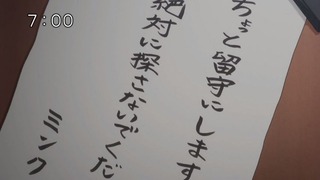 7:00
ちょっと留守にします
絶対に探さないでくだ
ミンク